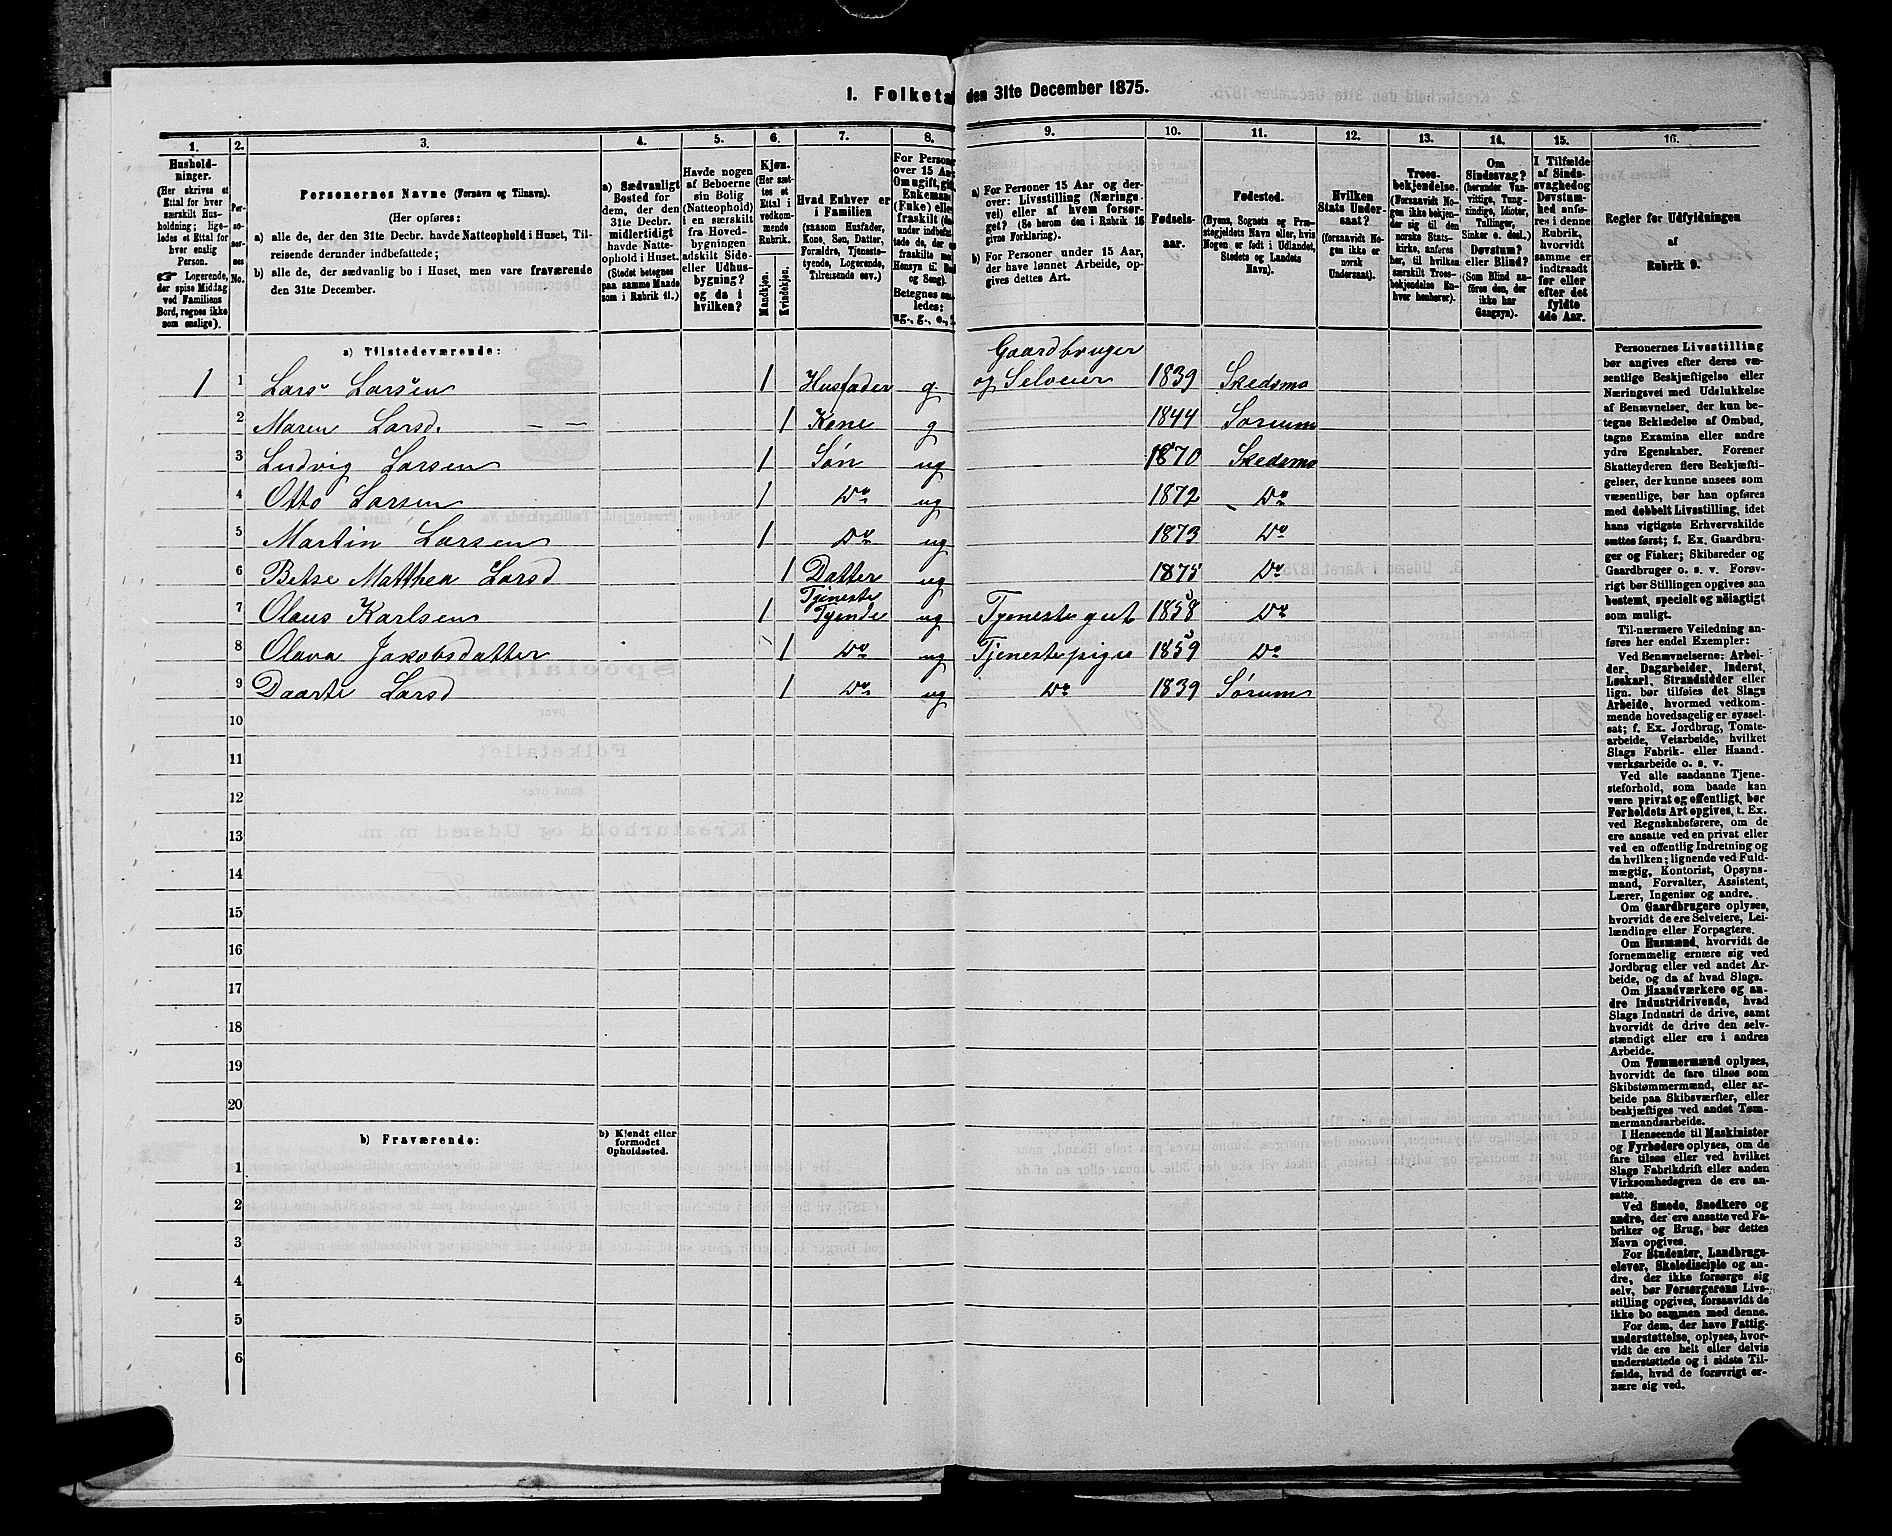 1. Folketa den 31te December 1875.
1. 2. 3. 4. 5. 6. 7. 8. 9. 10. 11. 12. 13. 14. 15. 16.
Husholdninger.
(Her skrives et Ettal for hver særskilt Husholdning; ligeledes et Ettal for hver enslig Person.
☛ Logerende, der spise Middag ved Familiens Bord, regnes ikke som enslige).
Personernes No.
Personernes Navne (Fornavn og Tilnavn).
(Her opføres:
a) alle de, der den 31te Decbr. havde Natteophold i Huset, Tilreisende derunder indbefattede;
b) alle de, der sædvanlig bo i Huset, men vare fraværende den 31te December.
a) Sædvanligt Bosted for dem, der den 31te Decbr. midlertidigt havde Natteophold i Huset.
(Stedet betegnes paa samme Maade som i Rubrik 11.)
Havde nogen af Beboerne sin Bolig (Natteophold) i en særskilt fra Hovedbygningen adskilt Side- eller Udhusbygning? og da i hvilken?
Kjøn.
(Her sættes et Ettal i vedkommende Rubrik.
Mandkjøn.
Kvindekjøn.
Hvad Enhver er i Familien
(saasom Husfader, Kone, Søn, Datter, Forældre, Tjenestetyende, Logerende, Tilreisende osv.)
For Persone over 15 Aar Om ugift, gif Enkemand (Enke) elle fraskilt
Betegnes saaledes: ug., g., e.,
a) For Personer 15 Aar og derover: Livsstilling (Næringsvei) eller af hvem forsørget? (Se herom den i Rubrik 16 givne Forklaring).
b) For Personer under 15 Aar, der have lønnet Arbeide, opgives dettes Art.
Fødselsaar.
Fødested.
(Byens, Sognets og Præstegjeldets Navn eller, hvis Nogen er født i Udlandet, Stedets og Landets Navn).
Hvilken Stats Undersaat?
(forsaavidt Nogen ikke er norsk Undersaat).
Troesbekjendelse.
(Forsaavidt Nogen ikke bekjender sig til den norske Statskirke, anføres her, til hvilken særskilt Troesbekjendelse Enhver henhører).
Om Sindssvag?
(herunder Vanvittige, Tungsindige, Idioter, Tullinger, Sinker o. desl.)
Døvstum? eller Blind?
(Som Blind anføres den, der ikke har Gangsyn).
I Tilfælde af Sindssvaghed og Døvstumhed anføres i denne Rubrik, hvorvidt samme er indtraadt før eller efter det fyldte 4de Aar.
Regler for Udfyldningen af Rubrik 9.
a) Tilstedeværende:
1 1 Lars Larsen 1 Husfader g. Gaardbruger og Selveier 1839 Skedsmo
2 Maren Larsd. — — 1 Kone g 1844 Sørum
3 Ludvig Larsen 1 Søn ug 1870 Skedsmo
4 Otto Larsen 1 Do ug 1872 Do
5 Martin Larsen 1 Do ug 1873 Do
6 Betse Matthea Larsd 1 Datter ug 1875 Do
7 Olaus Karlsen 1 Tjeneste Tyende ug Tjenestegut 1858 Do
8 Olava Jakobsdatter 1 Do ug Tjenestepige 1859 Do
9 Daarte Larsd 1 Do ug Do 1839 Sørum
10
11
12
13
14
15
16
17
18
19
20
b) Fraværende:
b) Kjendt eller formodet Opholdssted.
1
2
3
4
5
6
Personernes Livsstilling
bør angives efter deres væ-
sentlige Beskjæftigelse eller
Næringsvei med Udelukkelse
af Benævnelser, der kun be-
tegne Beklædelse af Ombud,
tagne Examina eller andre
ydre Egenskaber. Forener
Skatteyderen flere Beskjæfti-
gelser, der kunne ansees som
væsentlige, bør han opføres
med dobbelt Livsstilling, idet
hans vigtigste Erhvervskilde
sættes først; f. Ex. Gaardbru-
ger og Fisker; Skibsreder og
Gaardbruger o. s. v. Forøv-
rigt bør Stillingen opgives saa
bestemt, specielt og nøiagtigt
som muligt.
Til nærmere Veiledning an-
føres her endel Exempler:
Ved Benævnelserne: Arbei-
der, Dagarbeider, Inderst,
Løskarl, Strandsidder eller
lign. bør tilføies det Slags
Arbeide, hvormed vedkom-
mende hovedsagelig er syssel-
sat; f. Ex. Jordbrug, Tomte-
arbeide, Veiarbeide, hvilket
Slags Fabrik- eller Haand-
værksarbeide o. s. v.
Ved alle saadanne Tjene-
steforhold, som baade kan
være privat og offentligt, bør
Forholdets Art opgives, t. Ex.
ved Regnskabsførere, om de
ere ansatte ved en privat eller
ved en offentlig Indretning og
da hvilken; lignende ved Fuld-
mægtig, Kontorist, Opsyns-
mand, Forvalter, Assistent,
Lærer, Ingeniør og andre.
Om Gaardbrugere oplyses,
hvorvidt de ere Selveiere, Lei-
lændinge eller Forpagtere.
Om Husmænd, hvorvidt de
fornemmelig ernære sig ved
Jordbrug eller ved andet Ar-
beide, og da af hvad Slags.
Om Haandværkere og an-
dre Industridrivende, hvad
Slags Industri de drive, samt
hvorvidt de drive den selv-
stændigt eller ere i andres
Arbeide.
Om Tømmermænd oplyses,
hvorvidt de fare tilsøs som
Skibstømmermænd, eller ar-
beide paa Skibsværfter, eller
beskjæftiges ved andet Tøm-
mermandsarbeide.
I Henseende til Maskinister
og Fyrbødere oplyses, om de
fare tilsøs eller ved hvilket
Slags Fabrikdrift eller anden
Virksomhedsgren de ere an-
satte.
Ved Smede, Snedkere og
andre, der ere ansatte ved Fa-
briker og Brug, bør dettes
Navn opgives.
For Studenter, Landbrugs-
elever, Skoledisciple og an-
dre, der ikke forsørge sig
selv, bør Forsørgerens Livs-
stilling opgives, forsaavidt de
ikke bo sammen med denne.
For dem, der have Fattig-
understøttelse, oplyses, hvor-
vidt de ere helt eller delvis
understøttede og i sidste Til-
fælde, hvad de forøvrigt er-
nære sig ved.